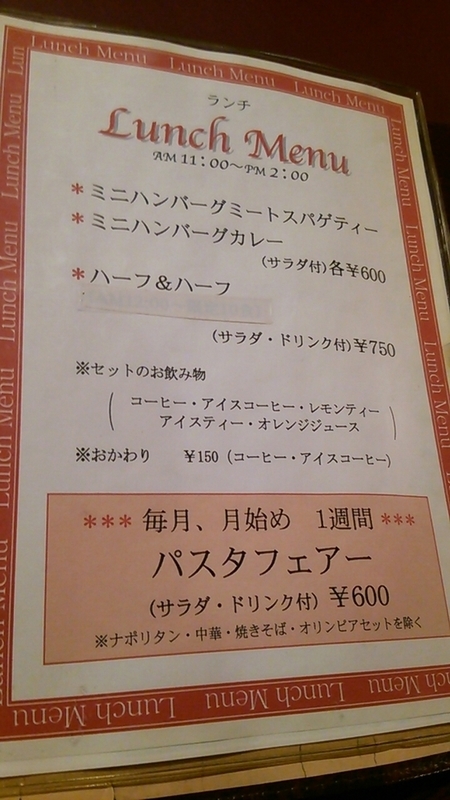 Lunch Menu Lunch Menu Lunch Menu
ランチ
Lunch Menu
AM 11：00～PM 2：00
＊ミニハンバーグミートスパゲティー
＊ミニハンバーグカレー
(サラダ付)各¥600
＊ハーフ＆ハーフ
(サラダ・ドリンク付)¥750
※セットのお飲み物
(コーヒー・アイスコーヒー・レモンティー
アイスティー・オレンジジュース)
※おかわり ¥150 (コーヒー・アイスコーヒー)
＊＊＊ 毎月、月始め 1週間 ＊＊＊
パスタフェアー
(サラダ・ドリンク付) ¥600
※ナポリタン・中華・焼きそば・オリンピアセットを除く
Lun
Lunch Menu
Lunch Menu
Lunch Menu
Lunch Menu
Lunch Menu
Lunch Menu
Lunch Menu
Lunch Menu Lunch Menu Lunch Menu Lunch Menu